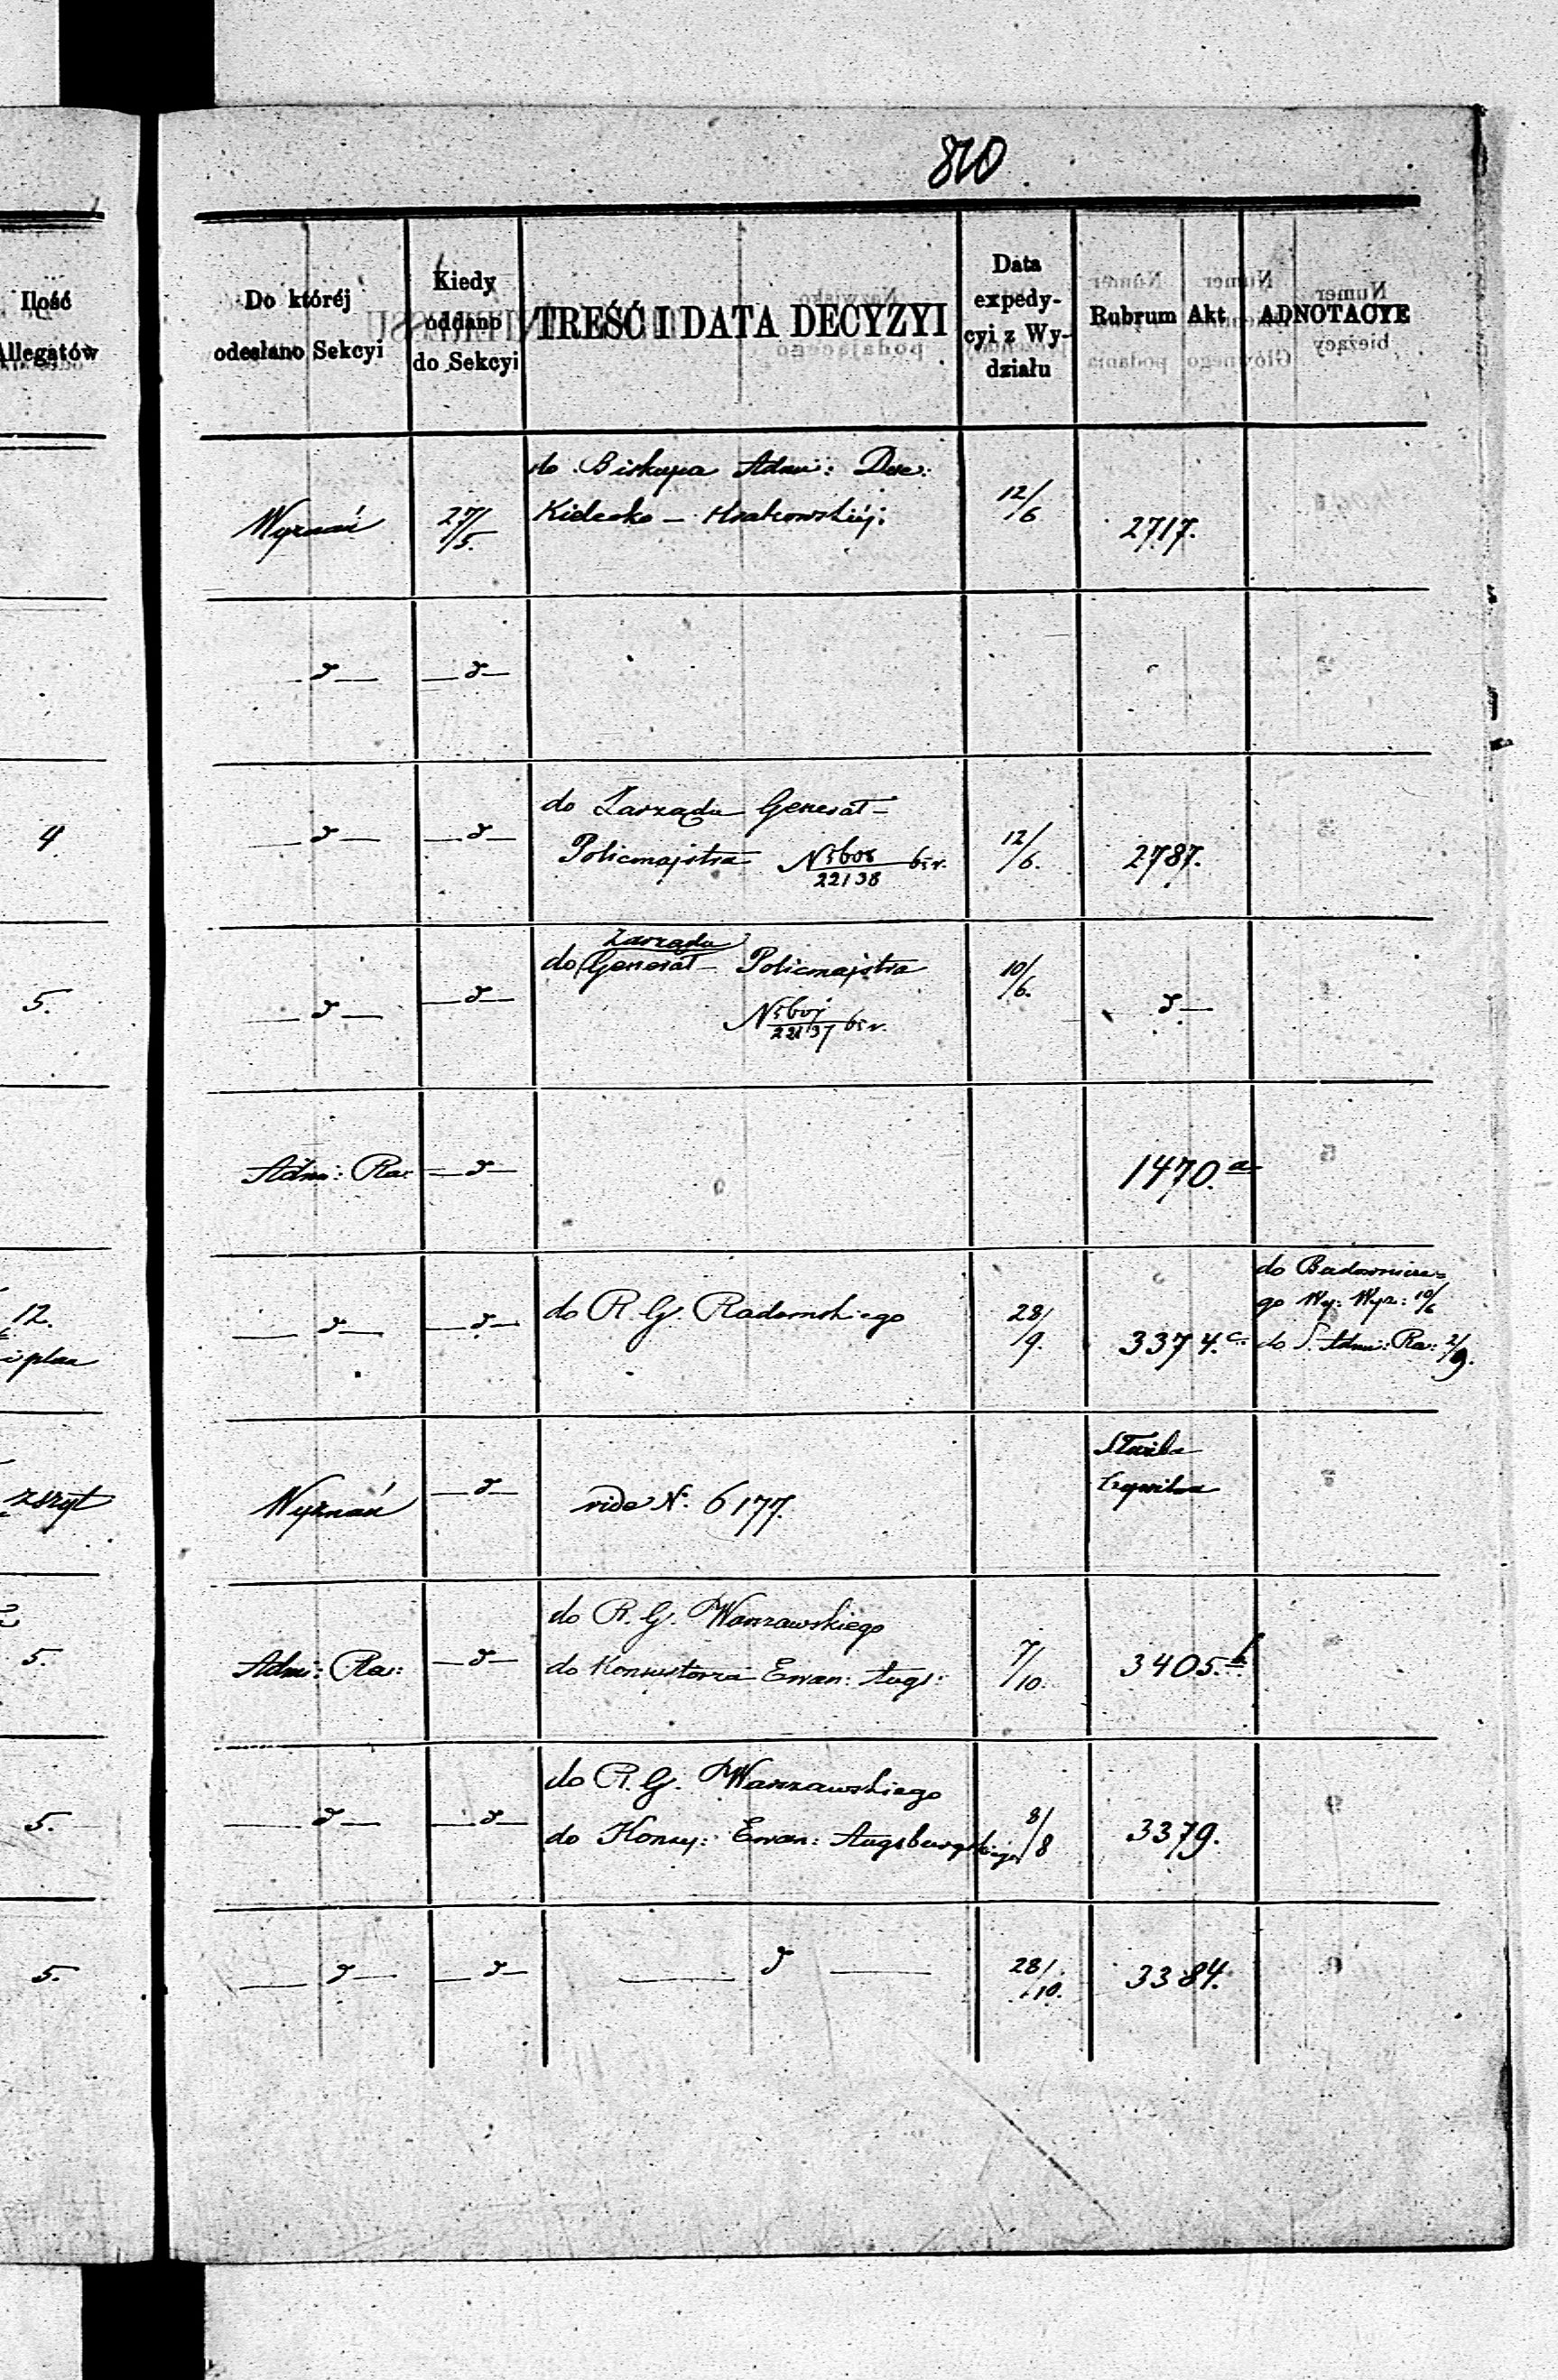 810
Ilość
Allegatów
Do któréj
odesłano Sekcyi
Kiedy
oddano
do Sekcyi
TREŚĆ I DATA DECYZYI
Data
expedy-
cyi z Wy-
działu
Rubrum Akt
ADNOTACYE
Wyznań
27/5.
do Biskupa Adm: Dye:
Kielecko - Krakowskiéj:
12/6
2717.
— d —
— d —
4
— d —
— d —
do Zarządu Generał-
Policmajstra
22138
12/6.
2787.
5.
— d —
— d —
Zarządu
do Generał- Policmajstra
22137
10/6.
d —
Adm: Ra:
— d —
1470.a
12.
i plan
— d —
— d —
do R. G. Radomskiego
28/9.
3374.c.
do Budownicze-
go Wy: Wyz: 10/6
do S. Adm: Ra: 2/9.
zszyt
Wyznań
— d —
vide N. 6177.
Służba
Cywilna
5.
Adm: Ra:
— d —
do R. G. Warszawskiego
do Konsystorza Ewan: Augs:
7/10.
3405.b
5.
— d —
— d —
do R. G. Warszawskiego
do Konsy: Ewan: Augsburgskiego
8/8
3379.
5.
— d —
— d —
— d —
28/10.
3384.